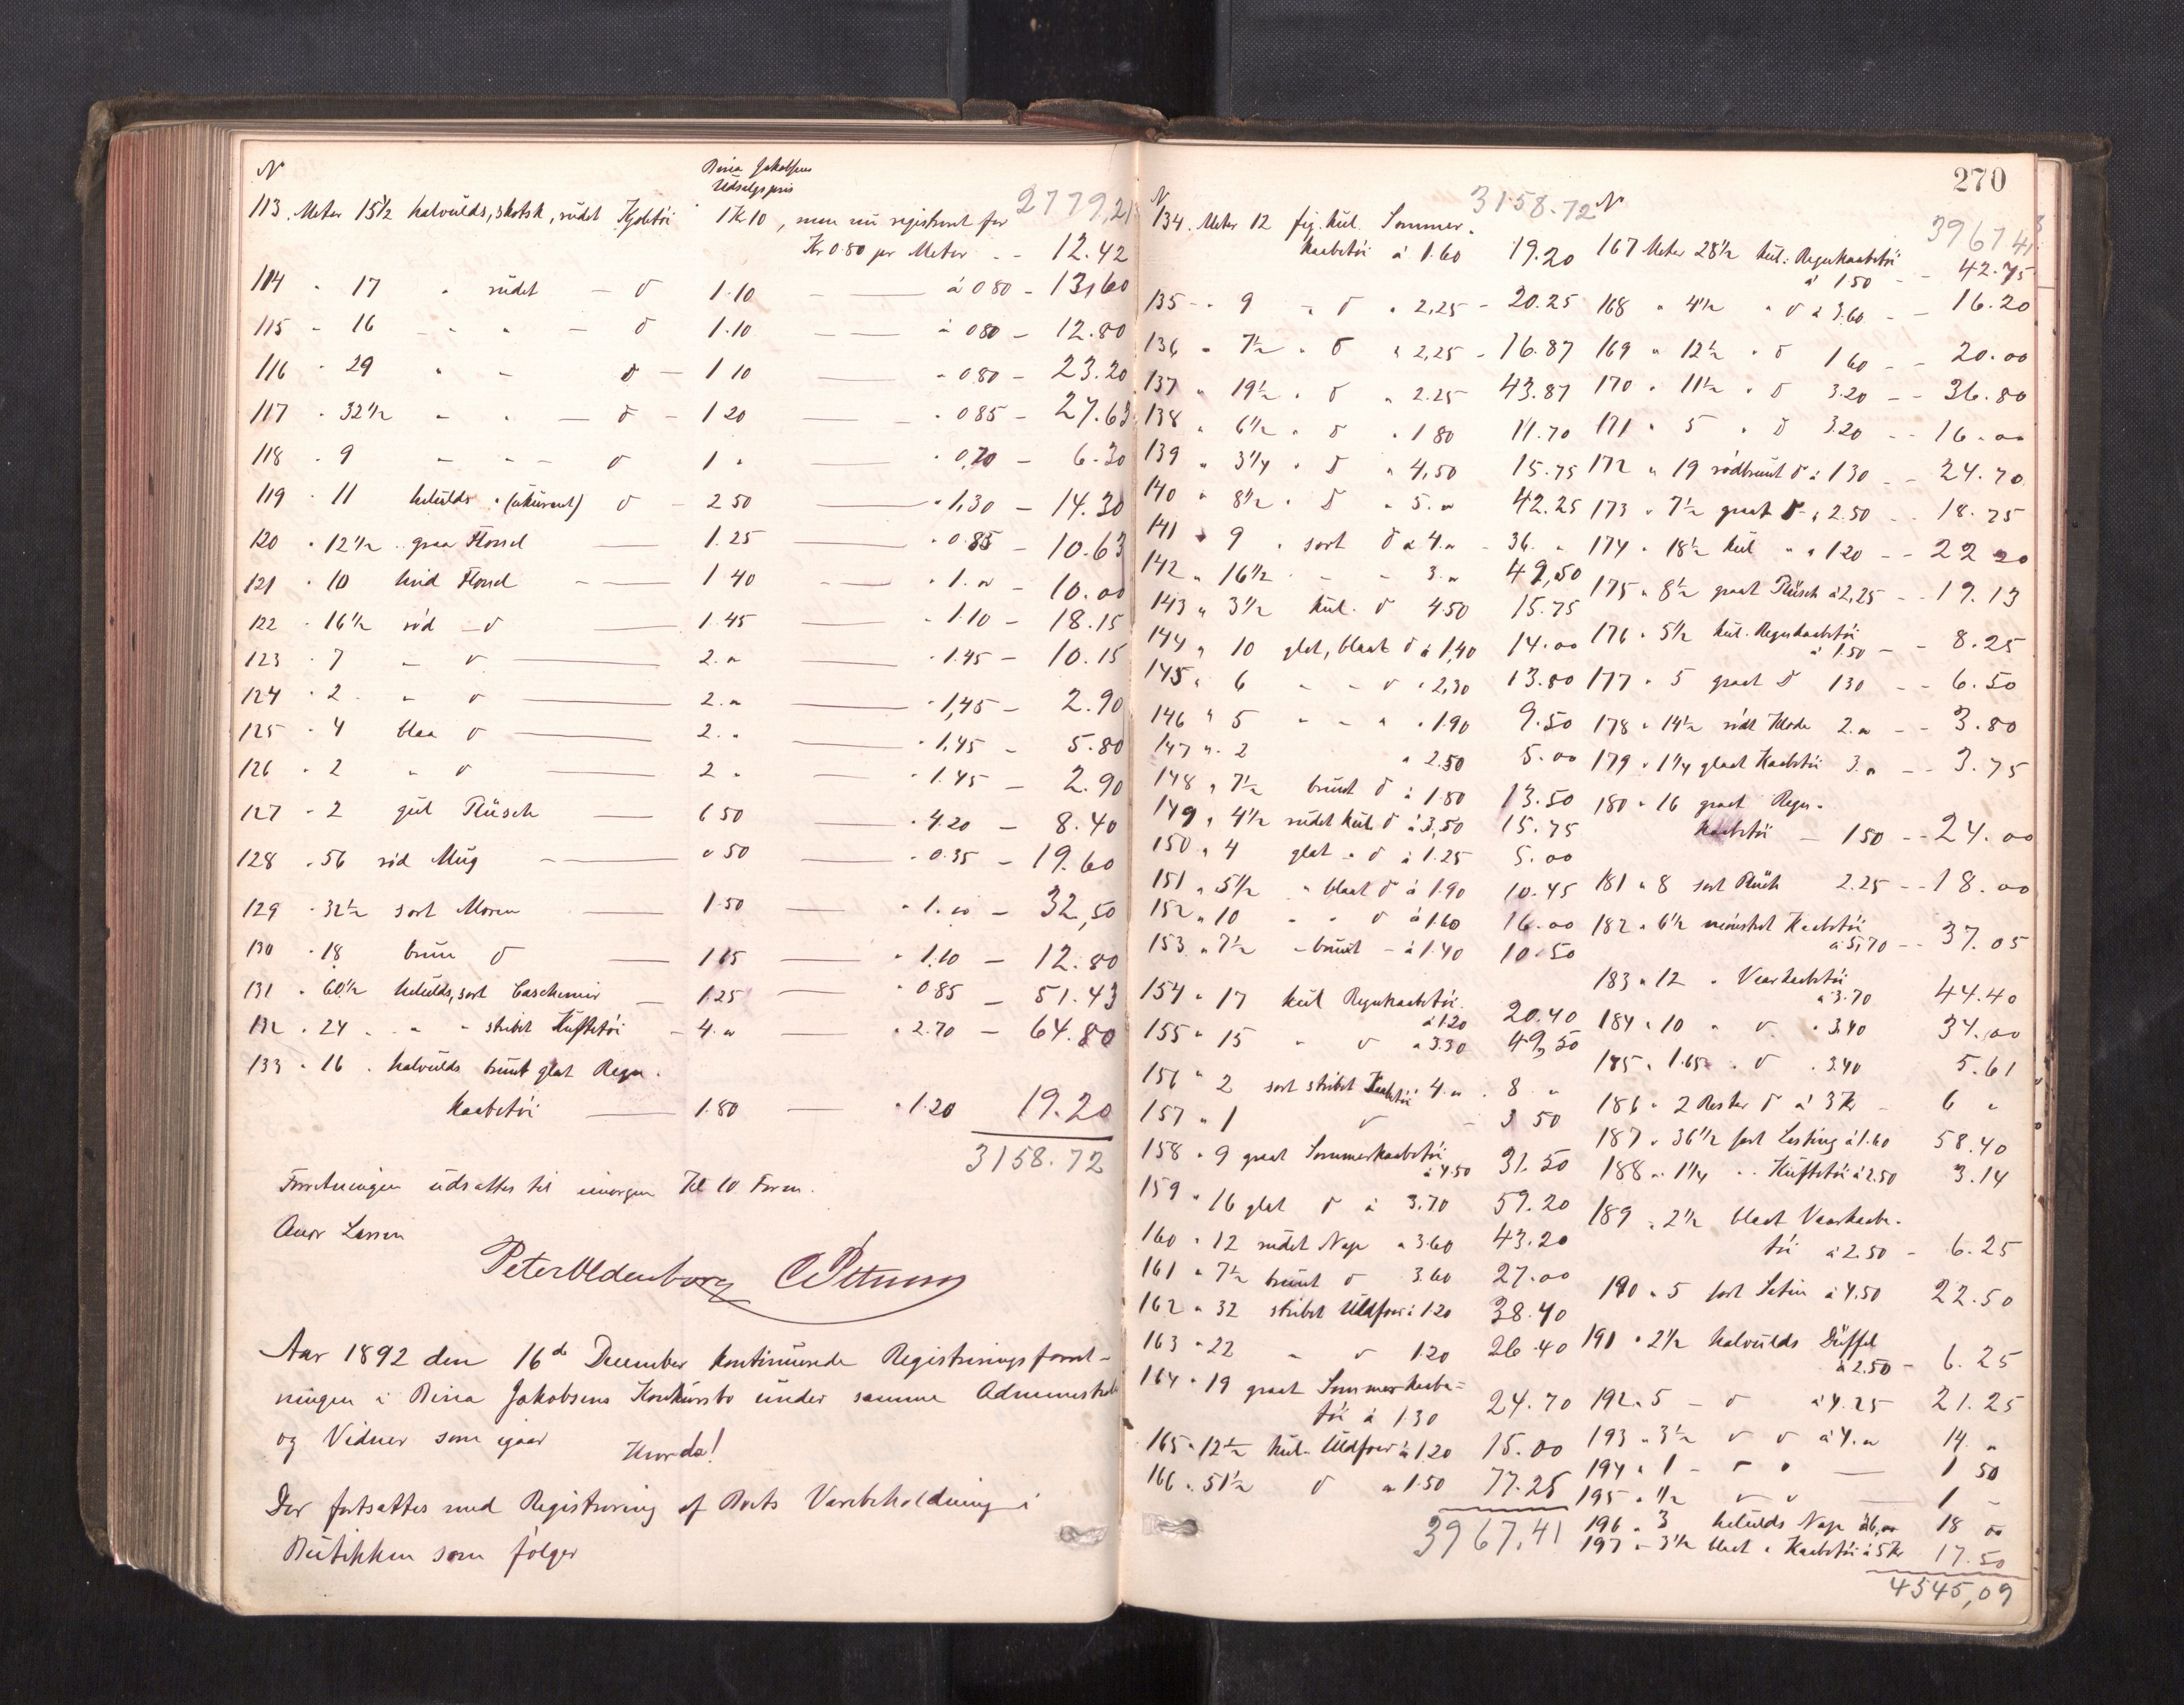 N
Dina Jakobsens
Udsalgspris
113. Meter 15½ halvulds, skotsk, rudet Kjoletøi 1 Kr 10, men nu registreret for 2779,21
Kr 0.80 pr Meter - - 12.42
114 " 17 " rudet — d 1.10 — à 0 80 - 13,60
115 - 16 - " — d 1.10 — à 0 80 — 12.80
116 " 29 " - d — 1 10 — " 0.80 — 23.20
117 " 32½ - " — d — 1 20 — " 0 85 — 27.63
118 " 9 - " - d 1 " — " 0,70 — 6.30
119 " 11 heluld " (ukurant) d - 2 50 — " 1,30 — 14.30
120 " 12½ " graa Flonel — 1.25 — " 0.85 — 10.63
121 " 10 hvid Flonel — 1 40 — " 1. " — 10.00
122 " 16½ rød - d — 1.45 — " 1.10 — 18.15
123 " 7 - d — 2. " — " 1.45 — 10.15
124 " 2 " d — 2. " — " 1,45 — 2.90
125 " 4 blaa d — 2. " — " 1,45 — 5.80
126 " 2 " d — 2 " — " 1.45 — 2.90
127 " 2 gul Plüsch — 6 50 — " 4.20 — 8.40
128 " 56 rød Mug — " 50 — " 0.35 — 19.60
129 " 32½ sort Moren — 1.50 — " 1.00 — 32,50
130 " 18 brun d — 1 15 — " 1.10 — 12.80
131 " 60½ helulds, sort Caschemir — 1.25 — " 0.85 — 51.43
132 " 24 " " - stribet Kuftetøi - 4. " — " 2.70 — 64.80
133 " 16 " halvulds brunt glat Regn-
kaabetøi — 1.80 — " 1.20 19.20
3158.72
Forretningen udsattes til imorgen Kl 10 Form.
Peter Oldenborg
Aar 1892 den 16de December kontinuerede Registreringsforret-
ningen i Dina Jakobsens Konkursbo under samme Administrat
og Vidner som igaar
Hvorda!
Der fortsattes med Registrering af Boets Varebeholdning i
Butikken som følger
270
N 3158.72
134. Meter 12 fig. hul. Sommer-
kaabetøi à 1.60 19.20
135 - " 9 " d " 2,25 - 20.25
136 " 7½ " d " 2,25 - 16.87
137 " 19½ " d " 2.25 43.87
138 " 6½ " d " 1 80 11.70
139 " 3½ " d " 4,50 15.75
140 " 8½ " d " 5. " 42.25
141 " 9 " sort d à 4. " - 36. "
142 " 16½ " - - 3. " 49,50
143 " 3½ hul. d 4.50 15.75
144 " 10 glat, blaat d à 1,40 14.00
145 " 6 - - d " 2,30 13.80
146 " 5 - - " " 1.90 9.50
147 " 2 " 2.50 5.00
148 " 7½ brunt d à 1.80 13.50
149 " 4½ rudet hul. d à 3,50 15.75
150 " 4 glat - d à 1.25 5.00
151 " 5½ " blaat d à 1.90 10.45
152 " 10 - - d à 1.60 16.00
153 " 7½ - brunt - à 1.40 10.50
154 " 17 hul Regnkaabetøi
à 1.20 20.40
155 " 15 " d à 3.30 49,50
156 " 2 sort stribet Kaabetøi 4. " . 8 "
157 " 1 d - 3 50
158 " 9 graat Sommerkaabetøi
à 4.50 31.50
159 " 16 glat d à 3.70 59.20
160 " 12 rudet Nap " 3.60 43.20
161 " 7½ brunt d 3.60 27.00
162 " 32 stribet Uldfoer à 1.20 38.40
163 " 22 " d 1.20 26.40
164 " 19 graat Sommerkaabe-
tøi à 1.30 24.70
165 " 12½ hul. Uldfoer à 1.20 15.00
166 " 51½ d à 1.50 77.25
3967,41
N 3967 41
167 Meter 28½ hul. Regnkaabetøi
à 1 50 - 42.75
168 " 4½ " d à 3.60 - - 16.20
169 " 12½ " d 1 60 - - 20.00
170 " 11½ " d 3.20 - - 36.80
171 " 5 " d 3.20 - - 16.00
172 " 19 rødbrunt d à 1 30 - - 24.70
173 " 7½ graat d " 2.50 - - 18.75
174 " 18½ hul " " 1 20 - - 22 20
175 " 8½ graat Plüsch à 2,25 - - 19.13
176 " 5½ hul. Regnkaabetøi
à 1.50 - - 8.25
177 " 5 graat d 1 30 - - 6.50
178 " 14½ rødt Klæde 2. " - - 3.80
179 " 1¼ glat Kaabetøi 3. " - - 3.75
180 " 16 graat Regn-
kaabetøi — 1 50 - - 24.00
181 " 8 sort Plüsch 2.25 - - 18.00
182 " 6½ mønstret Kaabetøi
à 5,70 - - 37.05
183 " 12 " Vaarkaabetøi
à 3.70 44.40
184 " 10 " d " 3.40 34.00
185 " 1.65 " d . 3.40 5.61
186 " 2 Rester d à 3 Kr - 6 "
187 " 36½ sort Lasting à 1.60 58.40
188 " 1¼ " " Kuftetøi à 2.50 3.14
189 " 2½ blaat Vaarkaabe-
tøi à 2.50 - 6.25
190 " 5 sort Satin à 4.50 22.50
191 " 2½ halvulds Düffel
à 2.50 - 6.25
192 " 5 - d à 4.25 21.25
193 " 3½ d d à 4. " 14. "
194 " 1 - d d — 1 50
195 " ½ d d — 1 "
196 " 3 helulds Nap à 6,00 18 00
197 " 3½ blaat " Kaabetøi à 5 Kr 17.50
4545,09